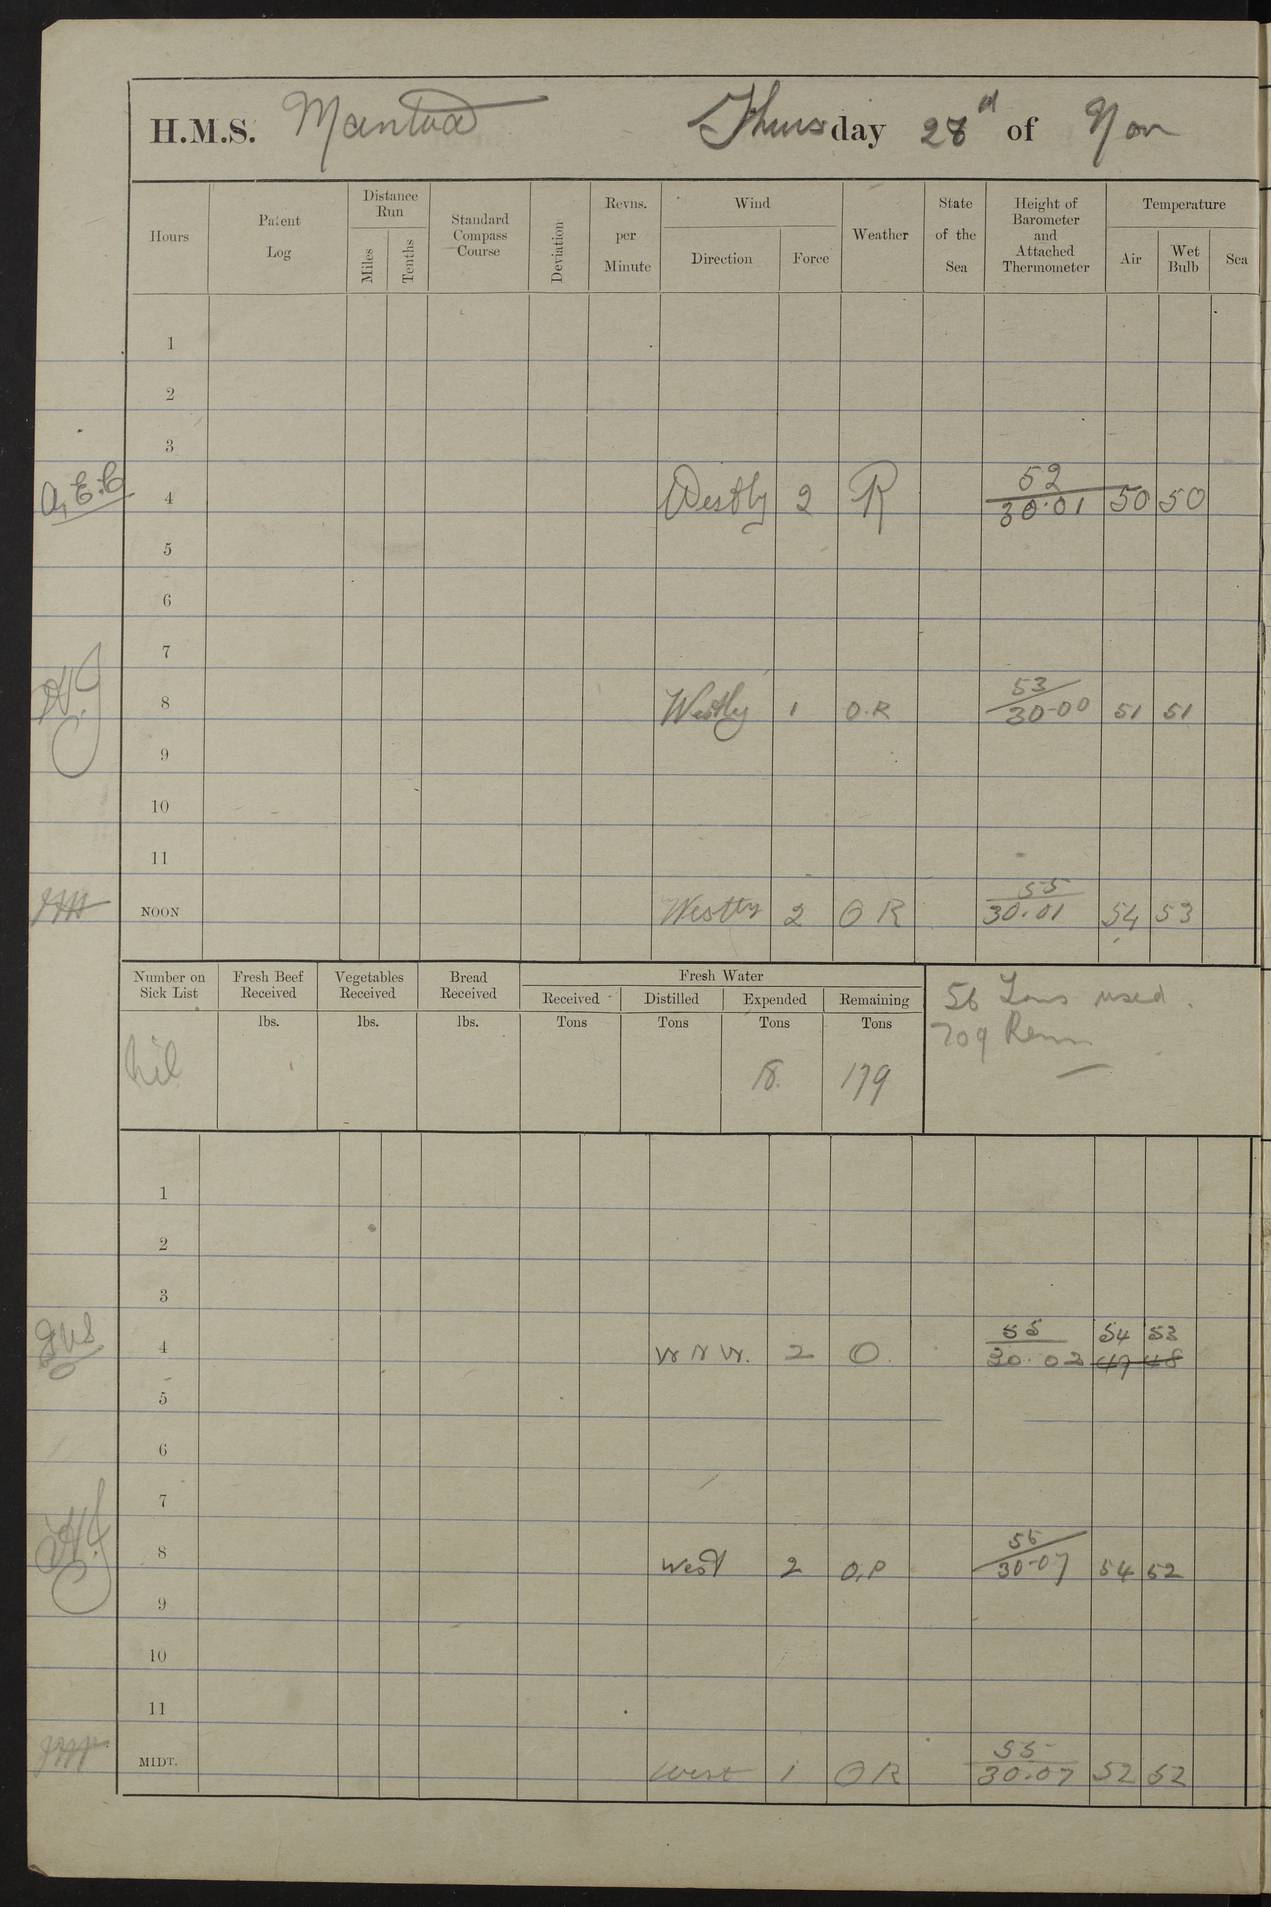 H.M.S. Mantua Thursday 28th of Nov
Hours Patent Log Distance Run Miles Tenths Standard Compass Course Deviation Revns. per Minute Wind Direction Force Weather State of the Sea Height of Barometer and Attached Thermometer Temperature Air Wet Bulb Sea
1
2
3
A.E.C 4 Westly 2 R 52/30.01 50 50
5
6
7
8 Westly 1 O.R 53/30-00 51 51
9
10
11
NOON Westly 2 O R 55/30.01 54 53
Number on Sick List Fresh Beef Received Vegetables Received Bread Received Fresh Water
Received Distilled Expended Remaining
lbs. lbs. lbs. Tons Tons Tons Tons
Nil 18. 179
56 Tons used.
709 Rem
1
2
3
4 W N W. 2 O. 55/30.02 54 53
49 48
5
6
7
8 West 2 O,P 55/30-07 54 52
9
10
11
MIDT. West 1 O R 55/30.07 52 52